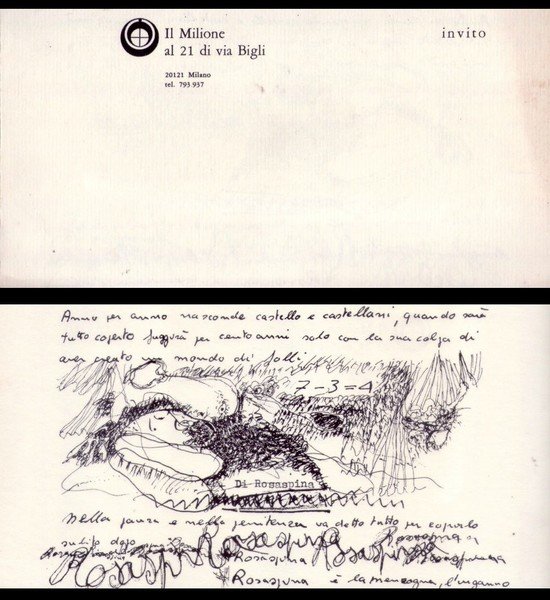 Il Milione
al 21 di via Bigli
invito
20121 Milano
tel. 793.937
Anno per anno nasconde castello e castellani, quando sarà
tutto coperto fuggirà per cento anni solo con la sua colpa di
aver creato un mondo di folli
7-3=4
Di Rosaspina
Nella paura e nella penitenza va detto tutto per coprirlo
subito dopo
Rosaspina Rosaspina Rosaspina Rosaspina
Rosaspina
Rosaspina è la menzogna, l'inganno